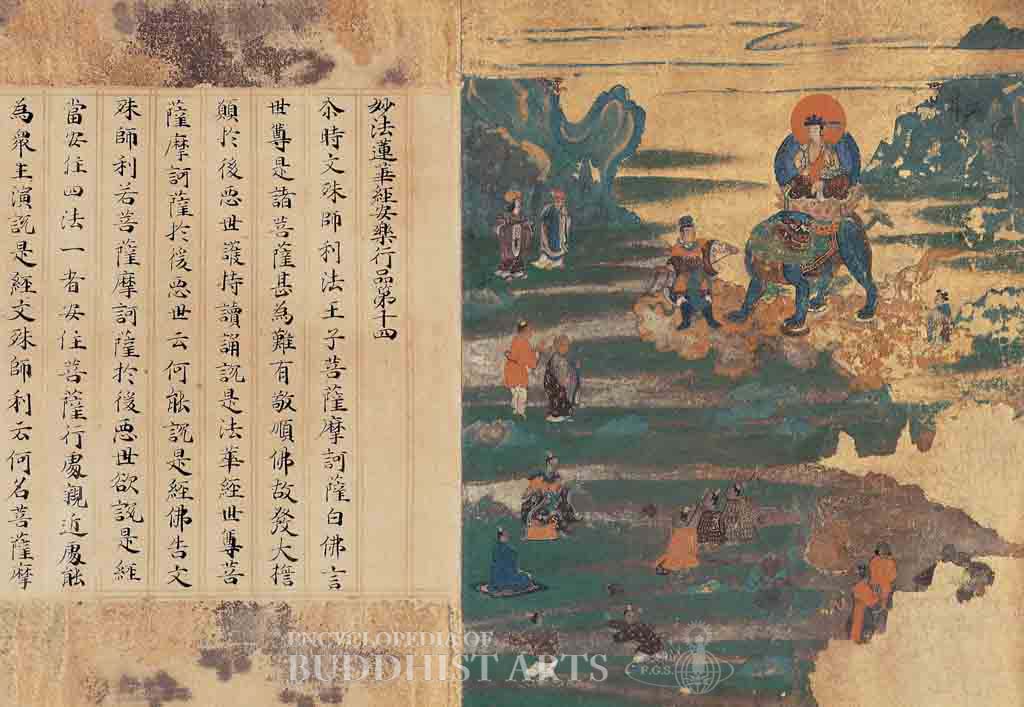 妙法蓮華經安樂行品第十四
尒時文殊師利法王子菩薩摩訶薩白佛言
世尊是諸菩薩甚為難有敬順佛故發大誓
願於後惡世護持讀誦說是法華經世尊菩
薩摩訶薩於後惡世云何能說是經佛告文
殊師利若菩薩摩訶薩於後惡世欲說是經
當安住四法一者安住菩薩行處親近處能
為眾生演說是經文殊師利云何名菩薩摩
ENCYCLOPEDIA OF
BUDDHIST ARTS
F.G.S.